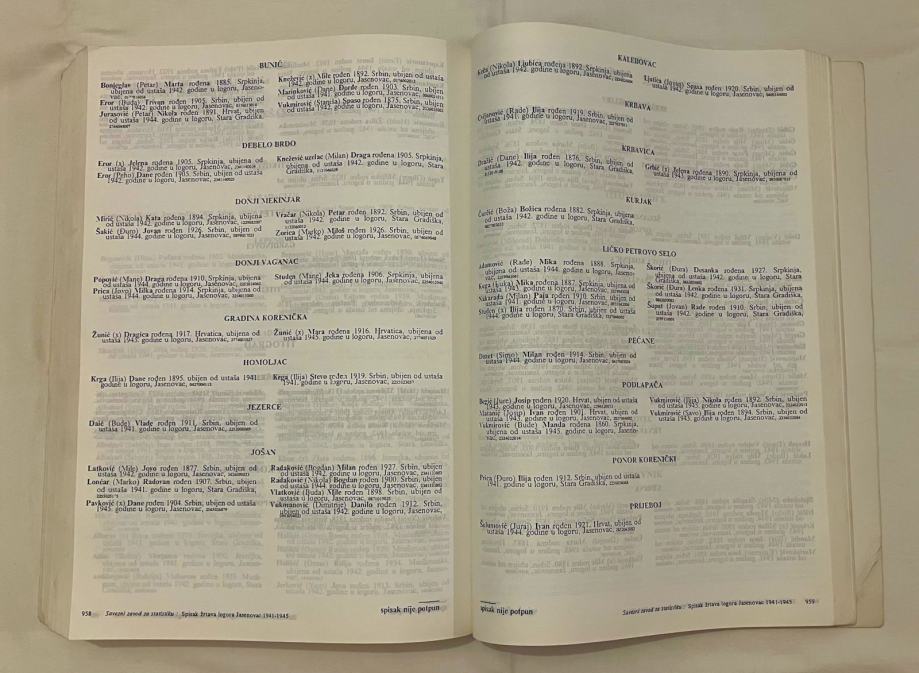 BUNIĆ
Bonjeglav (Petar) Marta rođena 1885. Srpkinja,
ubijena od ustaša 1942. godine u logoru, Jaseno-
vac,
Eror (Buda) Trivan rođen 1905. Srbin, ubijen od
ustaša 1942. godine u logoru, Jasenovac,
Jurasović (Petar) Nikola rođen 1891. Srbin, ubijen
od ustaša 1944. godine u logoru, Stara Gradiška,
Knežević (x) Mile rođen 1892. Srbin, ubijen od ustaša
1942. godine u logoru, Jasenovac,
Marinković (Dane) Đorđe rođen 1903. Srbin, ubijen
od ustaša 1942. godine u logoru, Jasenovac,
Vukmirović (Staniša) Spaso rođen 1875. Srbin, ubijen
od ustaša 1942. godine u logoru, Jasenovac,
DEBELO BRDO
Eror (x) Jelena rođena 1905. Srpkinja, ubijena od
ustaša 1942. godine u logoru, Jasenovac,
Eror (Peho) Dane rođen 1905. Srbin, ubijen od ustaša
1942. godine u logoru, Jasenovac,
Knežević uzelac (Milan) Draga rođena 1905. Srpkinja,
ubijena od ustaša 1942. godine u logoru, Stara
Gradiška,
DONJI MEKINJAR
Mirić (Nikola) Kata rođena 1894. Srpkinja, ubijena
od ustaša 1942. godine u logoru, Jasenovac,
Šakić (Đuro) Jovan rođen 1926. Srbin, ubijen od
ustaša 1944. godine u logoru, Jasenovac,
Vračar (Nikola) Petar rođen 1892. Srbin, ubijen od
ustaša 1942. godine u logoru, Stara Gradiška,
Zorica (Marko) Miloš rođen 1926. Srbin, ubijen od
ustaša 1942. godine u logoru, Jasenovac,
DONJI VAGANAC
Popović (Mane) Draga rođena 1910. Srpkinja, ubijena
od ustaša 1942. godine u logoru, Jasenovac,
Prica (Jovo) Milka rođena 1914. Srpkinja, ubijena od
ustaša 1944. godine u logoru, Jasenovac,
Studen (Mane) Jeka rođena 1906. Srpkinja, ubijena
od ustaša 1942. godine u logoru, Jasenovac,
GRADINA KORENIČKA
Žunić (x) Dragica rođena 1917. Hrvatica, ubijena od
ustaša 1945. godine u logoru, Jasenovac,
Žunić (x) Mara rođena 1916. Hrvatica, ubijena od
ustaša 1945. godine u logoru, Jasenovac,
HOMOLJAC
Krga (Ilija) Dane rođen 1895. ubijen od ustaša 1941.
godine u logoru, Jasenovac,
Krga (Ilija) Stevo rođen 1919. Srbin, ubijen od ustaša
1941. godine u logoru, Jasenovac,
JEZERCE
Daić (Bude) Vlade rođen 1911. Srbin, ubijen od
ustaša 1941. godine u logoru, Jasenovac,
JOŠAN
Latković (Mile) Jovo rođen 1877. Srbin, ubijen od
ustaša 1942. godine u logoru, Jasenovac,
Lončar (Marko) Radovan rođen 1907. Srbin, ubijen
od ustaša 1941. godine u logoru, Stara Gradiška,
Pavković (x) Dane rođen 1904. Srbin, ubijen od ustaša
1945. godine u logoru, Jasenovac,
Radaković (Bogdan) Milan rođen 1927. Srbin, ubijen
od ustaša 1942. godine u logoru, Jasenovac,
Radaković (Nikola) Bogdan rođen 1900. Srbin, ubijen
od ustaša 1944. godine u logoru, Jasenovac,
Vlatković (Buda) Mile rođen 1898. Srbin, ubijen od
ustaša 1942. godine u logoru, Jasenovac,
Vukmanović (Dimitrije) Danilo rođen 1912. Srbin,
ubijen od ustaša 1942. godine u logoru, Jasenovac,
958 Savezni zavod za statistiku : Spisak žrtava logora Jasenovac 1941-1945
spisak nije potpun
KALEBOVAC
(Nikola) Ljubica rođena 1892. Srpkinja, ubijena
od ustaša 1942. godine u logoru, Jasenovac,
Ljuština (Jovan) Spasa rođen 1920. Srbin, ubijen od
ustaša 1942. godine u logoru, Jasenovac,
KRBAVA
(Rade) Ilija rođen 1919. Srbin, ubijen od
ustaša 1941. godine u logoru, Jasenovac,
KRBAVICA
Dražić (Dane) Ilija rođen 1876. Srbin, ubijen od
ustaša 1942. godine u logoru, Stara Gradiška,
Grbić (x) Jelena rođena 1890. Srpkinja, ubijena od
ustaša 1945. godine u logoru, Jasenovac,
KURJAK
(Boža) Božica rođena 1882. Srpkinja, ubijena
od ustaša 1942. godine u logoru, Stara Gradiška,
LIČKO PETROVO SELO
Adamović (Rade) Mika rođena 1888. Srpkinja,
ubijena od ustaša 1944. godine u logoru, Jasenovac,
Kuga (Luka) Mika rođena 1887. Srpkinja, ubijena od
ustaša 1943. godine u logoru, Jasenovac,
Sakarada (Milan) Paja rođen 1910. Srbin, ubijen od
ustaša 1941. godine u logoru, Jasenovac,
Studen (x) Ilija rođen 1870. Srbin, ubijen od ustaša
1944. godine u logoru, Stara Gradiška,
Škorić (Đura) Desanka rođena 1927. Srpkinja,
ubijena od ustaša 1942. godine u logoru, Stara
Gradiška,
Škorić (Đura) Leska rođena 1931. Srpkinja, ubijena
od ustaša 1942. godine u logoru, Stara Gradiška,
Šuput (Jovan) Rade rođen 1910. Srbin, ubijen od
ustaša 1942. godine u logoru, Stara Gradiška,
PEĆANE
(Simo) Milan rođen 1914. Srbin, ubijen od
ustaša 1944. godine u logoru, Jasenovac,
PODLAPAČA
Bezić (Jure) Josip rođen 1920. Hrvat, ubijen od ustaša
1945. godine u logoru, Jasenovac,
Matanić (Josip) Ivan rođen 1901. Hrvat, ubijen od
ustaša 1945. godine u logoru, Jasenovac,
Vukmirović (Bude) Manda rođena 1860. Srpkinja,
ubijena od ustaša 1945. godine u logoru, Jaseno-
vac,
Vukmirović (Ilija) Nikola rođen 1892. Srbin, ubijen
od ustaša 1945. godine u logoru, Jasenovac,
Vukmirović (Savo) Ilija rođen 1894. Srbin, ubijen od
ustaša 1945. godine u logoru, Jasenovac,
PONOR KORENIČKI
Prica (Đuro) Ilija rođen 1912. Srbin, ubijen od ustaša
1941. godine u logoru, Stara Gradiška,
PRIJEBOJ
Šalamović (Juraj) Ivan rođen 1921. Hrvat, ubijen od
ustaša 1942. godine u logoru, Jasenovac,
spisak nije potpun
Savezni zavod za statistiku : Spisak žrtava logora Jasenovac 1941-1945 959